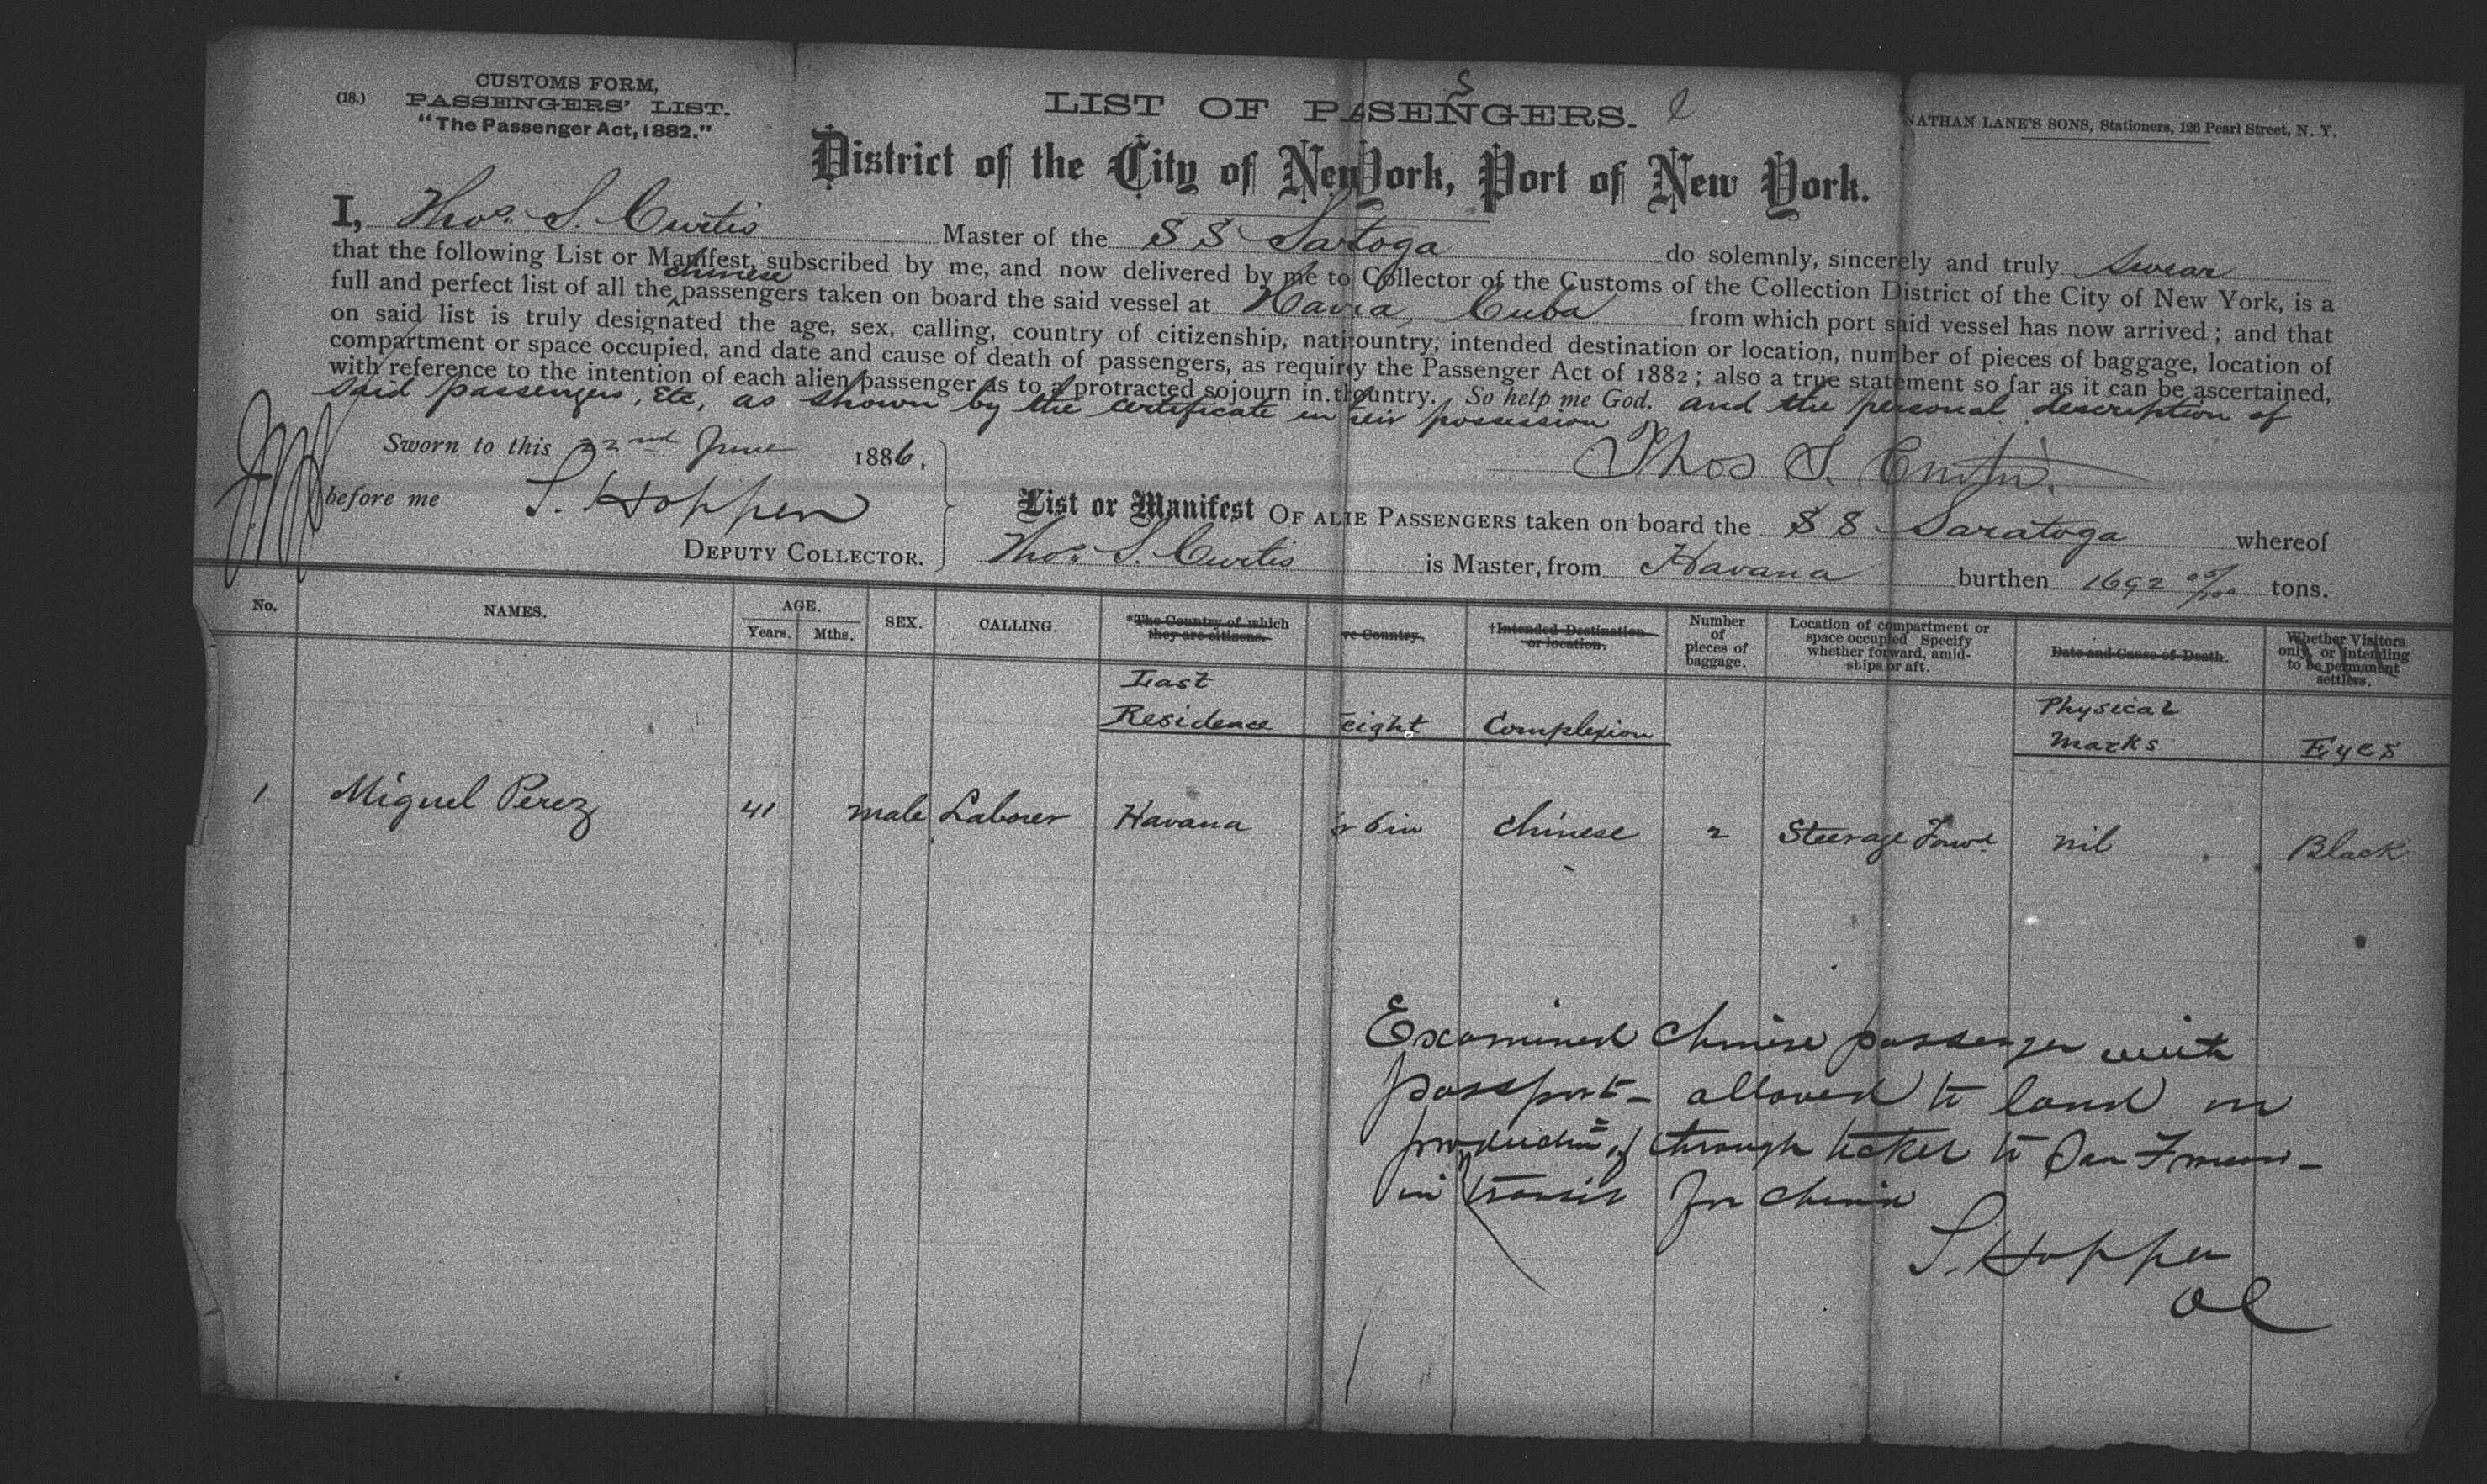 (18.)
CUSTOMS FORM,
PASSENGERS' LIST.
"The Passenger Act, 1882."
LIST OF PASENGERS.
NATHAN LANE'S SONS, Stationers, 126 Pearl Street, N. Y.
District of the City of New York, Port of New York.
I, Thos. S. Curtis Master of the S S Satoga do solemnly, sincerely and truly swear
that the following List or Manifest, subscribed by me, and now delivered by me to Collector of the Customs of the Collection District of the City of New York, is a
chinese
full and perfect list of all the passengers taken on board the said vessel at Havana, Cuba from which port said vessel has now arrived; and that
on said list is truly designated the age, sex, calling, country of citizenship, nati ountry, intended destination or location, number of pieces of baggage, location of
compartment or space occupied, and date and cause of death of passengers, as requir y the Passenger Act of 1882; also a true statement so far as it can be ascertained,
with reference to the intention of each alien passenger as to a protracted sojourn in th ountry. So help me God. and the personal description of
said passengers, Etc, as shown by the certificate in their possession
Sworn to this 22nd June 1886,
Thos S. Curtis.
before me S. Hopper
DEPUTY COLLECTOR.
List or Manifest OF ALIE PASSENGERS taken on board the S S Saratoga whereof
Thos. S. Curtis is Master, from Havana burthen 1692 tons.
No. NAMES. AGE. Years. Mths. SEX. CALLING. *The Country of which they are citizens. ve Country. †Intended Destination or location. Number of pieces of baggage. Location of compartment or space occupied Specify whether forward, amid-ships or aft. Date and Cause of Death. Whether Visitors only, or intending to be permanent settlers.
Last Residence eight Complexion Physical marks Eyes
1 Miguel Perez 41 male Laborer Havana 6 in chinese 2 Steerage Forwd nil Black
Examined Chinese passenger with
passport - allowed to land on
production of through ticket to San Francisco -
in transit for China
S. Hopper